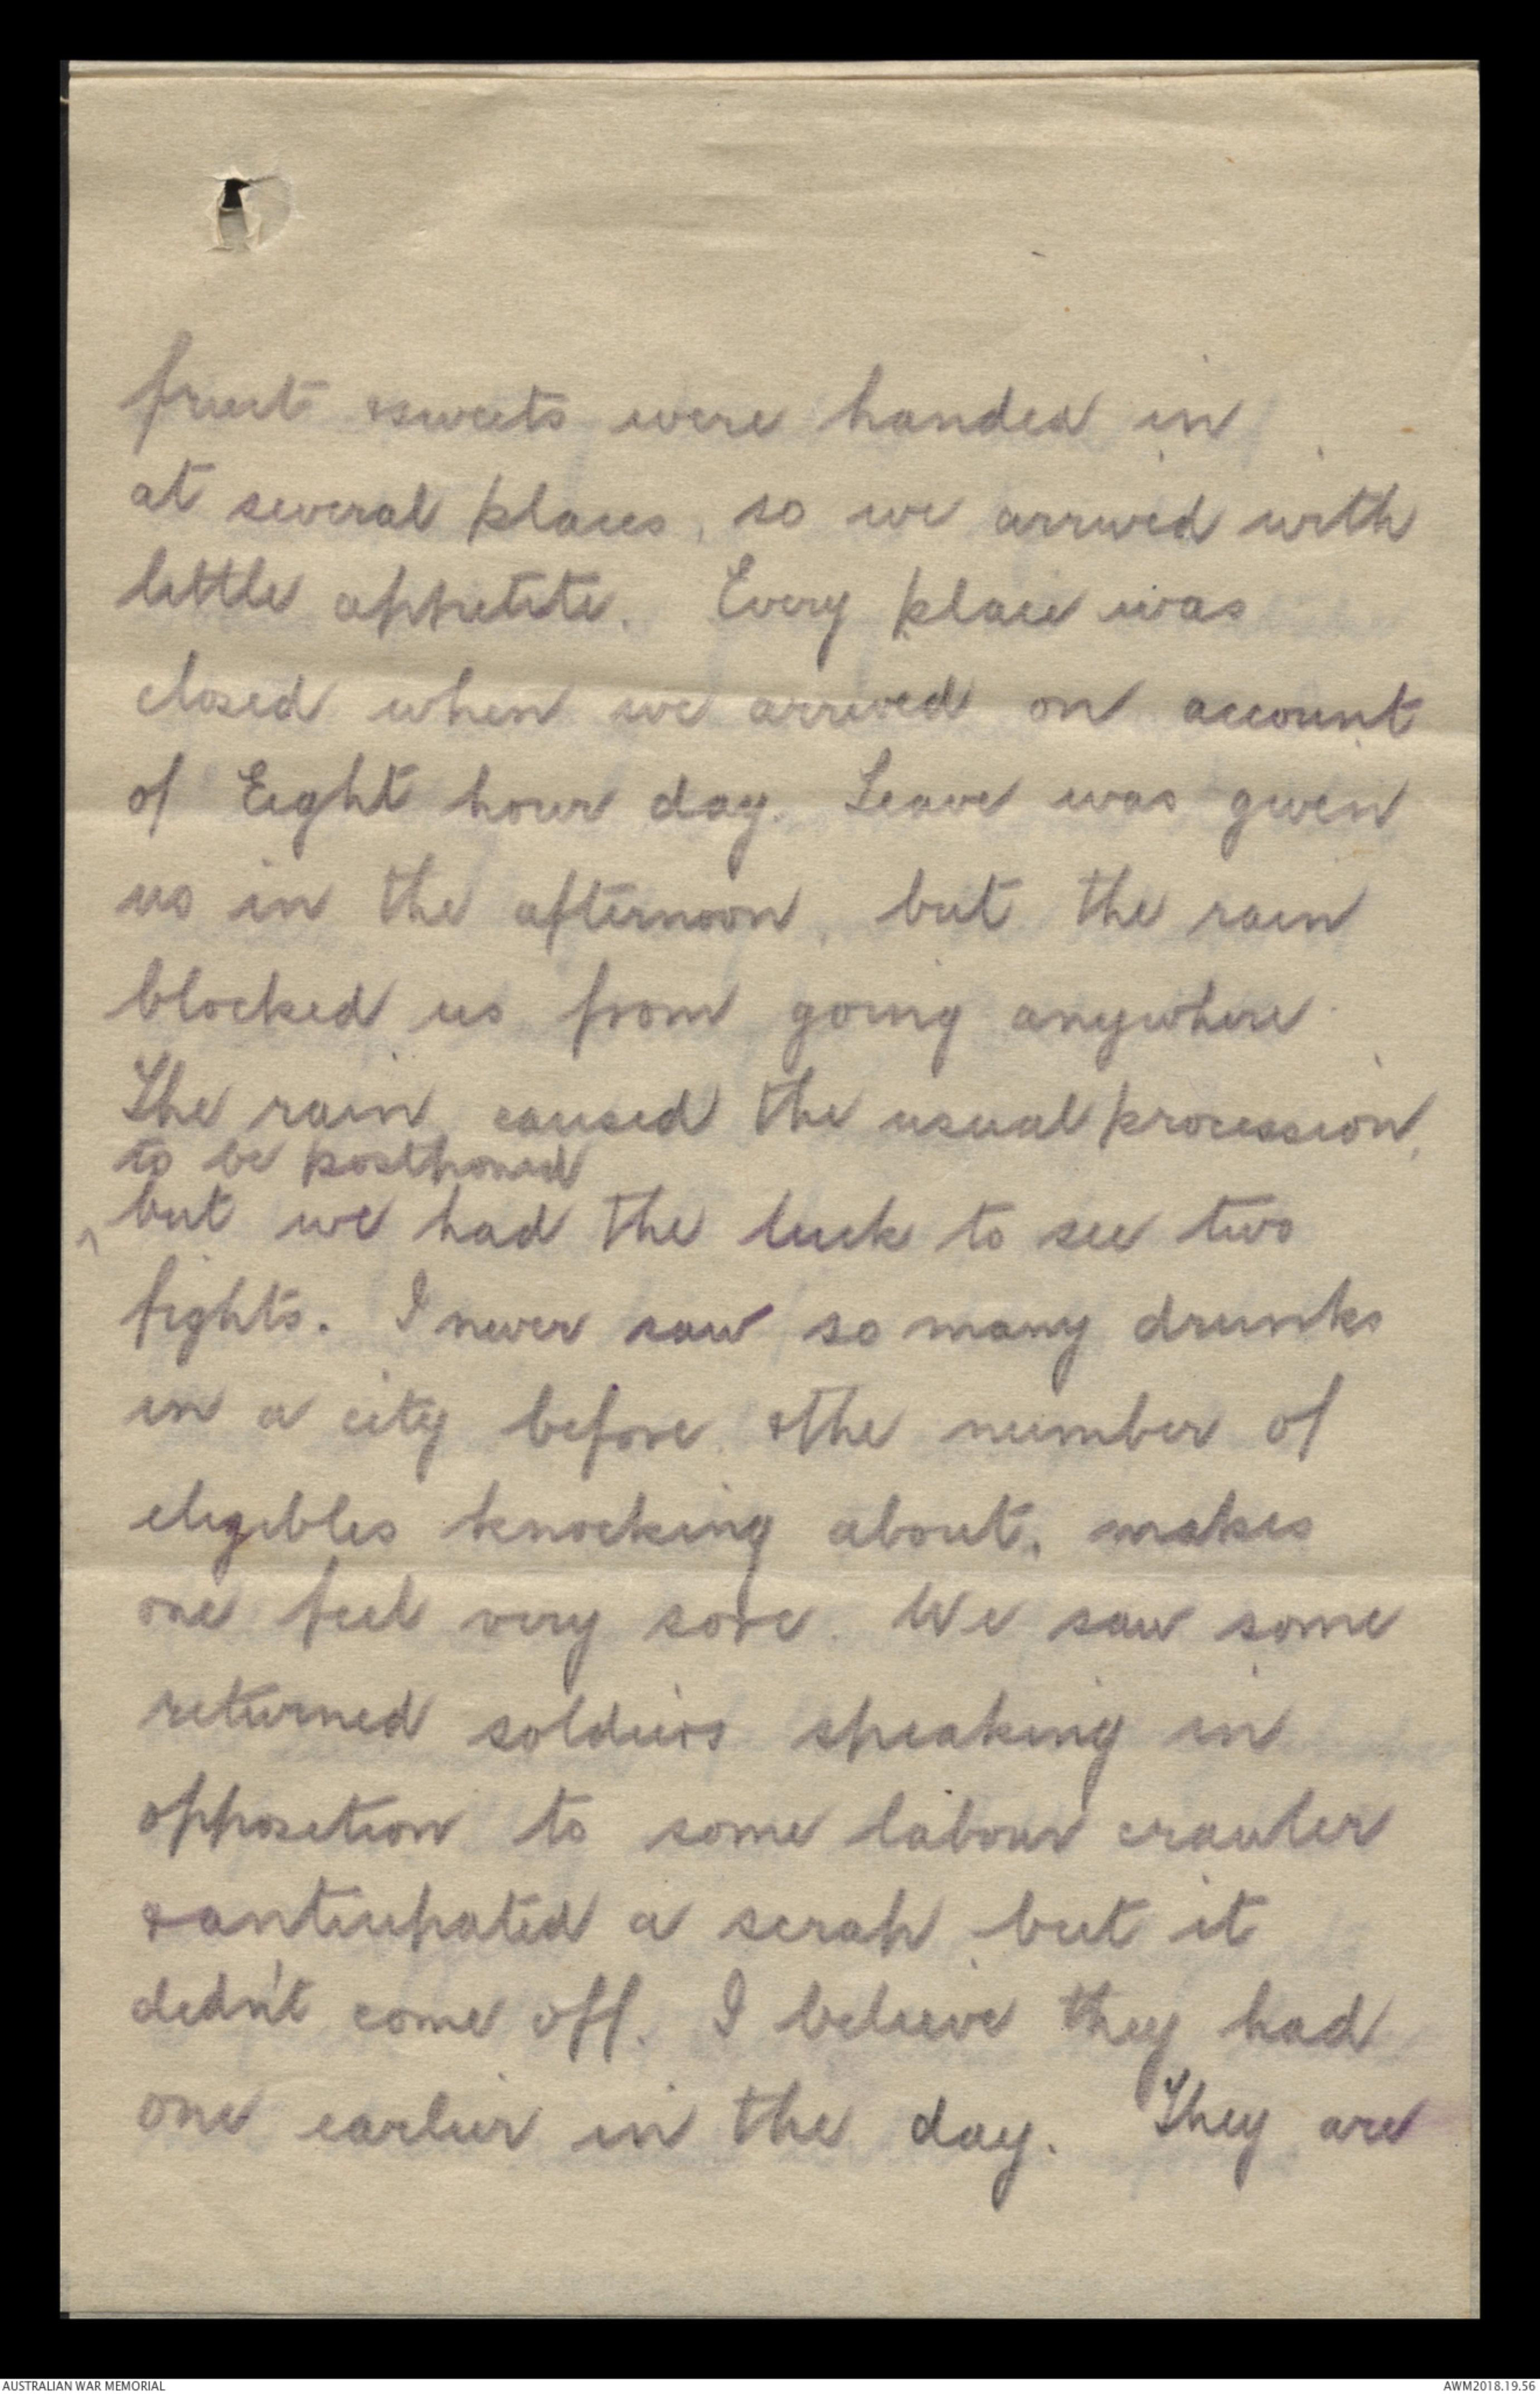 fruit & sweets were handed in
at several places, so we arrived with
little appetite. Every place was
closed when we arrived on account
of Eight hour day. Leave was given
us in the afternoon, but the rain
blocked us from going anywhere.
The rain caused the usual procession,
to be postponed
^but we had the luck to see two
fights. I never saw so many drunks
in a city before & the number of
eligibles knocking about, makes
one feel very sore. We saw some
returned soldiers speaking in
opposition to some labour crawler
& anticipated a scrap but it
didn't come off. I believe they had
one earlier in the day. They are
AUSTRALIAN WAR MEMORIAL
AWM2018.19.56